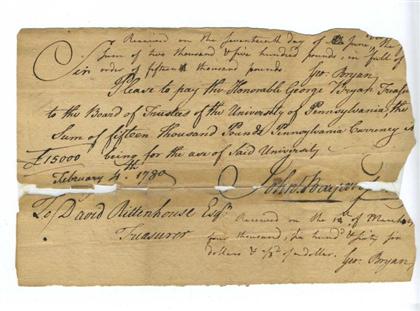 Received on the Seventeenth day of June, the
Sum of two thousand & five hundred pounds, in full of
order of fifteen thousand pounds
Geo: Bryan
Sir
Please to pay the Honorable George Bryan Treasr
to the Board of Trustees of the University of Pennsylvania, the
Sum of fifteen thousand Pounds Pennsylvania Currency
£15000 being for the use of Said University
February 4th 1780
To David Rittenhouse Esqr.
Treasurer
Received on the of March
four thousand, six hundd & sixty six
dollars & 2/3d of a dollar. Geo: Bryan